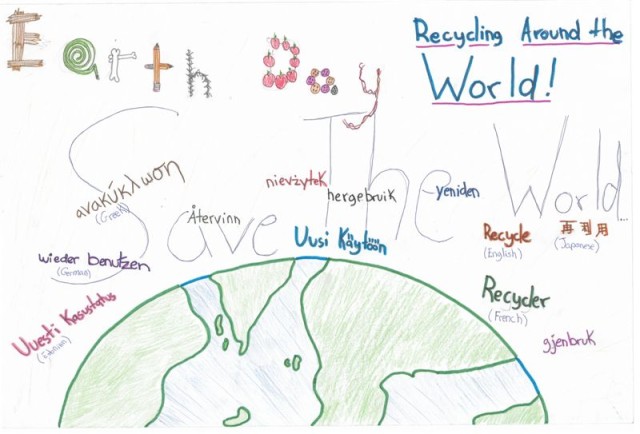 Earth Day
Recycling Around the
World!
Save The World
ανακύκλωση
(Greek)
nievżytek
hergebruik
yeniden
Återvinn
Uusi Käytöön
Recycle
(English)
再利用
(Japanese)
wieder benutzen
(German)
Recycler
(French)
Uuesti Kasustatus
gjenbruk